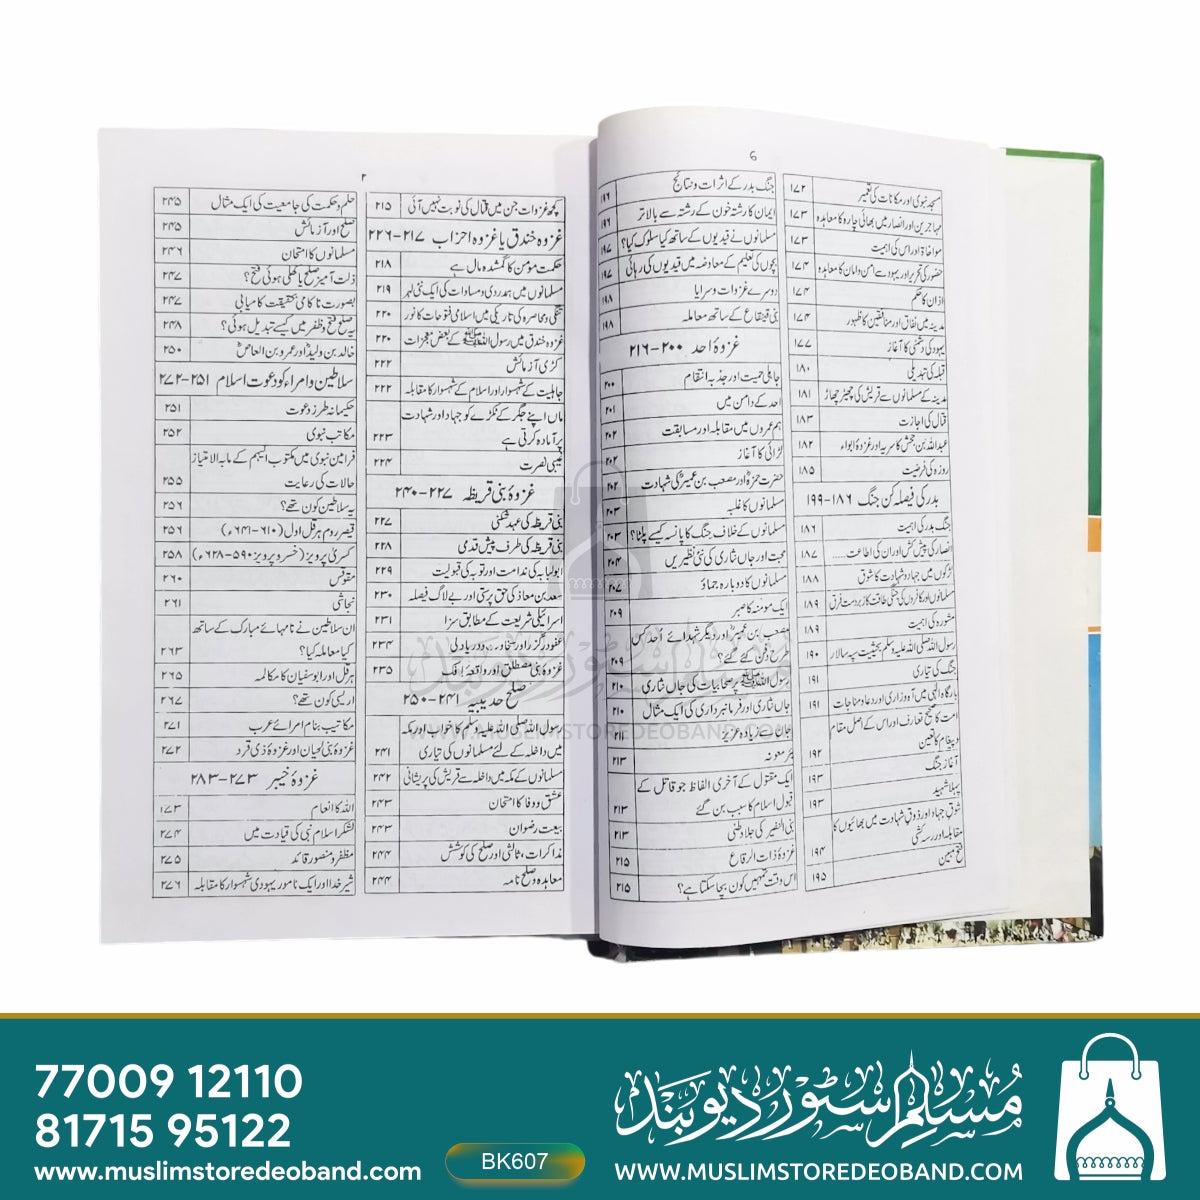 6
مسجد نبوی اور مکانات کی تعمیر ۱۷۲
مہاجرین اور انصار میں بھائی چارہ کا معاہدہ ۱۷۳
مواخاۃ اور اس کی اہمیت ۱۷۳
حضور کی تحریر اور یہود سے امن وامان کا معاہدہ ۱۷۴
اذان کا حکم ۱۷۴
مدینہ میں نفاق اور منافقین کا ظہور ۱۷۴
یہود کی دشمنی کا آغاز ۱۷۷
قبلہ کی تبدیلی ۱۸۰
مدینہ کے مسلمانوں سے قریش کی چھیڑ چھاڑ ۱۸۱
قتال کی اجازت ۱۸۳
عبداللہ بن جحش کا سریہ اور غزوۂ ابواء ۱۸۲
روزہ کی فرضیت ۱۸۵
بدر کی فیصلہ کن جنگ ۱۸۶-۱۹۹
جنگ بدر کی اہمیت ۱۸۶
انصار کی پیش کش اور ان کی اطاعت..... ۱۸۷
لڑکوں میں جہاد و شہادت کا شوق ۱۸۸
مسلمانوں اور کافروں کی جنگی طاقت کا زبردست فرق ۱۸۹
مشورہ کی اہمیت ۱۸۹
رسول اللہ صلی اللہ علیہ وسلم بحیثیت سپہ سالار ۱۹۰
جنگ کی تیاری ۱۹۱
بارگاہ الٰہی میں آہ وزاری اور دعا و مناجات ۱۹۱
امت کا صحیح تعارف اور اس کے اصل مقام
و پیغام کا تعین ۱۹۲
آغاز جنگ ۱۹۳
پہلا شہید ۱۹۳
شوق جہاد اور ذوق شہادت میں بھائیوں کا
مقابلہ اور رسہ کشی ۱۹۴
فتح مبین ۱۹۵
جنگ بدر کے اثرات و نتائج ۱۹۶
ایمان کا رشتہ خون کے رشتہ سے بالاتر ۱۹۶
مسلمانوں نے قیدیوں کے ساتھ کیا سلوک کیا؟ ۱۹۷
بچوں کی تعلیم کے معاوضہ میں قیدیوں کی رہائی ۱۹۷
دوسرے غزوات و سرایا ۱۹۸
بنی قینقاع کے ساتھ معاملہ ۱۹۸
غزوۂ احد ۲۰۰-۲۱۶
جاہلی حمیت اور جذبہ انتقام ۲۰۰
احد کے دامن میں ۲۰۱
ہم عمروں میں مقابلہ اور مسابقت ۲۰۲
لڑائی کا آغاز ۲۰۲
حضرت حمزہؓ اور مصعب بن عمیرؓ کی شہادت ۲۰۲
مسلمانوں کا غلبہ ۲۰۳
مسلمانوں کے خلاف جنگ کا پانسہ کیسے پلٹا؟ ۲۰۳
محبت اور جاں نثاری کی نئی نظیریں ۲۰۴
مسلمانوں کا دوبارہ جماؤ ۲۰۷
ایک مومنہ کا صبر ۲۰۹
مصعب بن عمیرؓ اور دیگر شہدائے اُحد کس
طرح دفن کئے گئے؟ ۲۰۹
رسول اللہ ﷺ پر صحابیات کی جاں نثاری ۲۱۰
جاں نثاری اور فرمانبرداری کی ایک مثال ۲۱۰
جان سے زیادہ عزیز ۲۱۱
بئر معونہ ۲۱۳
ایک مقتول کے آخری الفاظ جو قاتل کے
قبول اسلام کا سبب بن گئے ۲۱۳
بنی النضیر کی جلاوطنی ۲۱۳
غزوۂ ذات الرقاع ۲۱۵
اس وقت تمہیں کون بچا سکتا ہے؟ ۲۱۵
۲
کچھ غزوات جن میں قتال کی نوبت نہیں آئی ۲۱۵
غزوہ خندق یا غزوہ احزاب ۲۱۷-۲۲۶
حکمت مومن کا گمشدہ مال ہے ۲۱۸
مسلمانوں میں ہمدردی و مساوات کی ایک نئی لہر ۲۱۹
تنگی و محاصرہ کی تاریکی میں اسلامی فتوحات کا نور ۲۲۰
غزوہ خندق میں رسول اللہ ﷺ کے بعض معجزات ۲۲۰
کڑی آزمائش
جاہلیت کے شہسوار اور اسلام کے شہسوار کا مقابلہ ۲۲۲
ماں اپنے جگر کے ٹکڑے کو جہاد اور شہادت
پر آمادہ کرتی ہے ۲۲۳
غیبی نصرت ۲۲۴
غزوۂ بنی قریظہ ۲۲۷-۲۴۰
بنی قریظہ کی عہد شکنی ۲۲۷
بنی قریظہ کی طرف پیش قدمی ۲۲۸
ابولبابہ کی ندامت اور توبہ کی قبولیت ۲۲۹
سعد بن معاذ کی حق پرستی اور بے لاگ فیصلہ ۲۳۰
اسرائیلی شریعت کے مطابق سزا ۲۳۱
عفو و درگزر اور سخاوت و دریا دلی ۲۳۴
غزوۂ بنی مصطلق اور واقعہ اِفک ۲۳۵
صلح حدیبیہ ۲۴۱-۲۵۰
رسول اللہ صلی اللہ علیہ وسلم کا خواب اور مکہ
میں داخلہ کے لئے مسلمانوں کی تیاری ۲۴۱
مسلمانوں کے مکہ میں داخلہ سے قریش کی پریشانی ۲۴۲
عشق و وفا کا امتحان ۲۴۳
بیعت رضوان ۲۴۳
مذاکرات، ثالثی اور صلح کی کوشش ۲۴۴
معاہدہ و صلح نامہ ۲۴۴
حلم و حکمت کی جامعیت کی ایک مثال ۲۴۵
صلح اور آزمائش ۲۴۵
مسلمانوں کا امتحان ۲۴۶
ذلت آمیز صلح یا کھلی ہوئی فتح؟ ۲۴۷
بصورت ناکامی حقیقت کامیابی ۲۴۷
یہ صلح فتح و ظفر میں کیسے تبدیل ہوئی؟ ۲۴۸
خالد بن ولیدؓ اور عمرو بن العاصؓ ۲۵۰
سلاطین و امراء کو دعوت اسلام ۲۵۱-۲۷۲
حکیمانہ طرز دعوت ۲۵۱
مکاتب نبوی ۲۵۲
فرامین نبوی میں مکتوب الیہم کے مابہ الامتیاز
حالات کی رعایت ۲۵۵
یہ سلاطین کون تھے؟ ۲۵۶
قیصر روم ہرقل اول (۶۱۰-۶۴۱ء) ۲۵۶
کسریٰ پرویز (خسرو پرویز ۵۹۰-۶۲۸ء) ۲۵۸
مقوقس ۲۶۰
نجاشی ۲۶۱
ان سلاطین نے نامہائے مبارک کے ساتھ
کیا معاملہ کیا؟ ۲۶۳
ہرقل اور ابوسفیان کا مکالمہ ۲۶۵
اریسی کون تھے؟ ۲۶۷
مکاتیب بنام امرائے عرب ۲۷۱
غزوۂ بنی لحیان اور غزوۂ ذی قرد ۲۷۲
غزوۂ خیبر ۲۷۳-۲۸۳
اللہ کا انعام ۱۷۳
لشکر اسلام نبی کی قیادت میں ۲۷۴
مظفر و منصور قائد ۲۷۵
شیر خدا اور ایک نامور یہودی شہسوار کا مقابلہ ۲۷۶
مسلم سٹور دیوبند
WWW.MUSLIMSTOREDEOBAND.COM
77009 12110
81715 95122
www.muslimstoredeoband.com
BK607
مسلم سٹور دیوبند
www.MUSLIMSTOREDEOBAND.COM